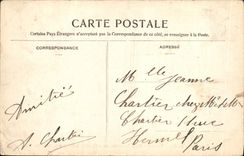 CARTE POSTALE
Certains Pays Étrangers n'acceptant pas la Correspondance de ce côté, se renseigner à la Poste.
CORRESPONDANCE
ADRESSE
Amitiés
A. Chartier
Mlle Jeanne
Chartier chez Md
Chartier
Paris